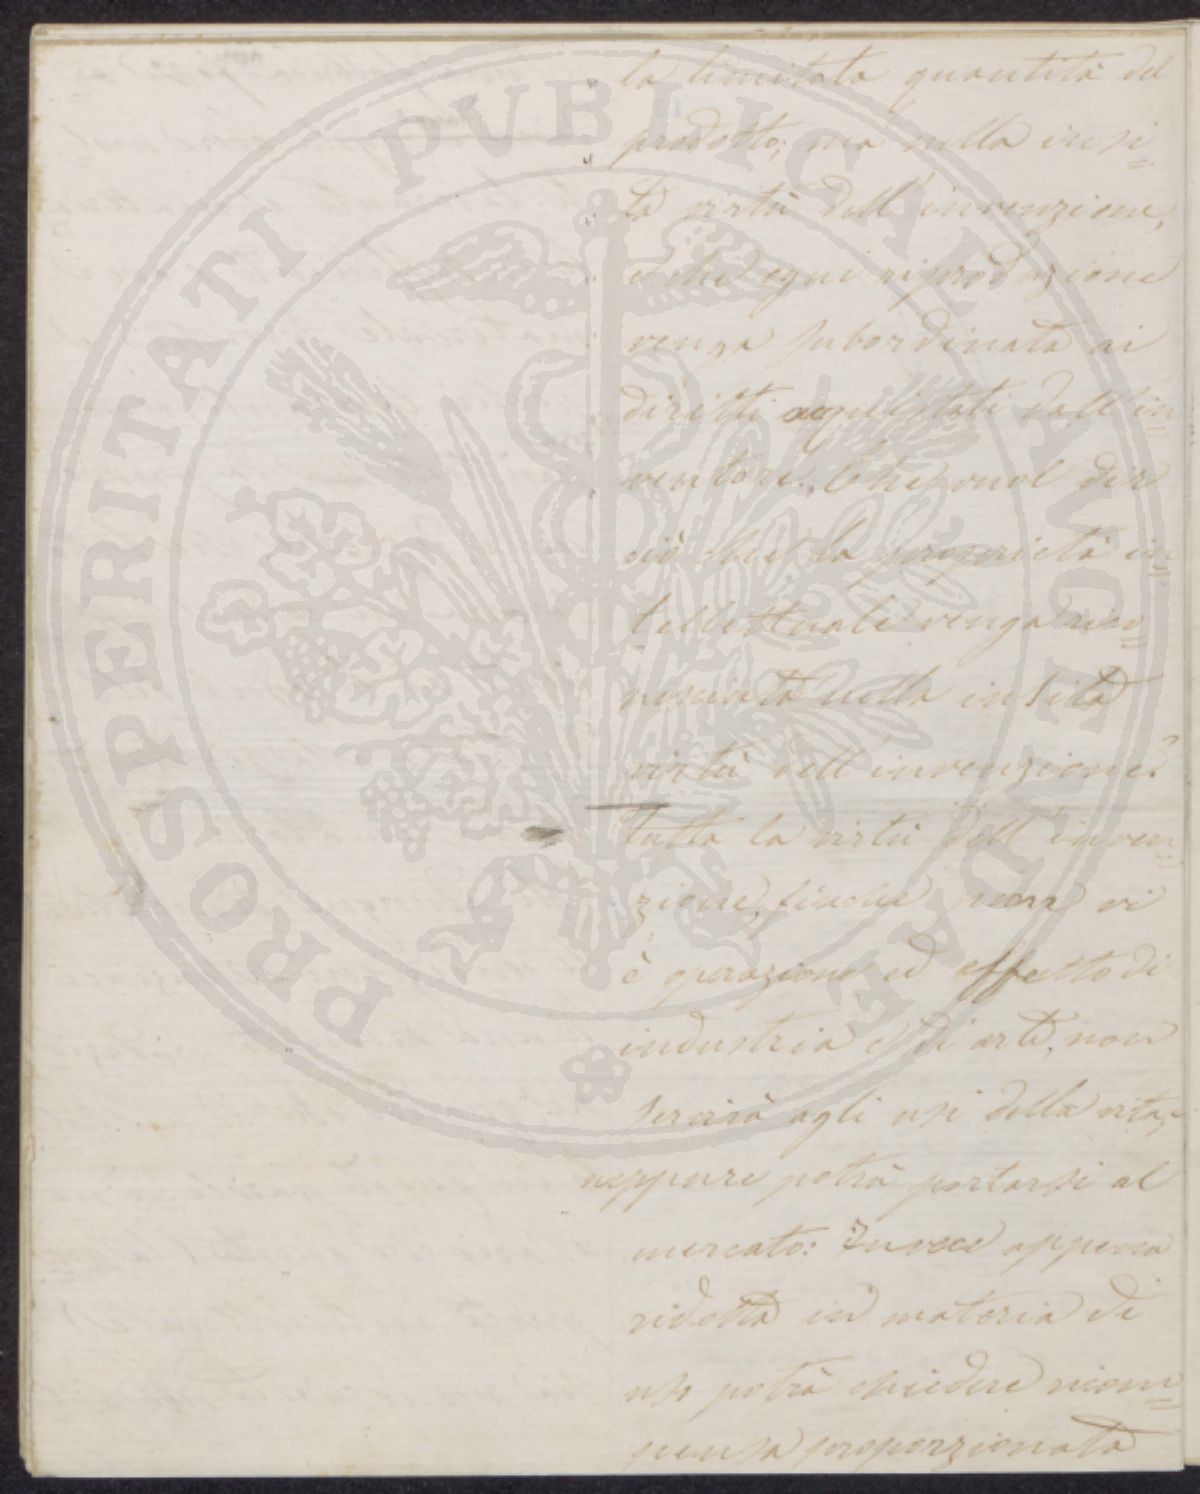 la limitata quantità del
prodotto; ma nella insi=
ta virtù dell'invenzione,
e che ogni riproduzione
venga subordinata ai
diritti acquistati dall'in=
ventore. Che vuol dir
ciò che la proprietà in=
tellettuale venga rico=
nosciuta nella insita
virtù dell'invenzione?
tutta la virtù dell'inven=
zione, finche non vi
è operazione ed effetto di
industria e di arte, non
servirà agli usi della vita,
neppure potrà portarsi al
mercato: Invece appena
ridotta in materia di
uso potrà chiedere ricom=
pensa proporzionata
PROSPERITATI PVBLICAE AVGENDAE